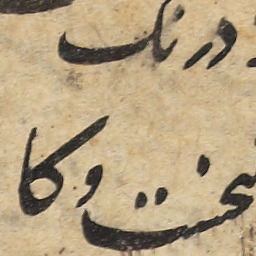 درنک
بخت و کا